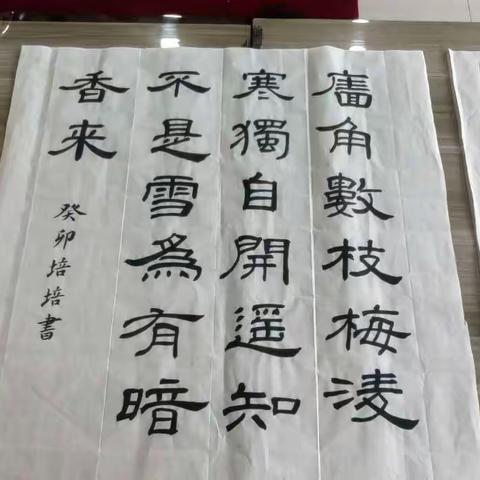 廧角數枝梅淩
寒獨自開遥知
不是雪為有暗
香来
癸卯培培書